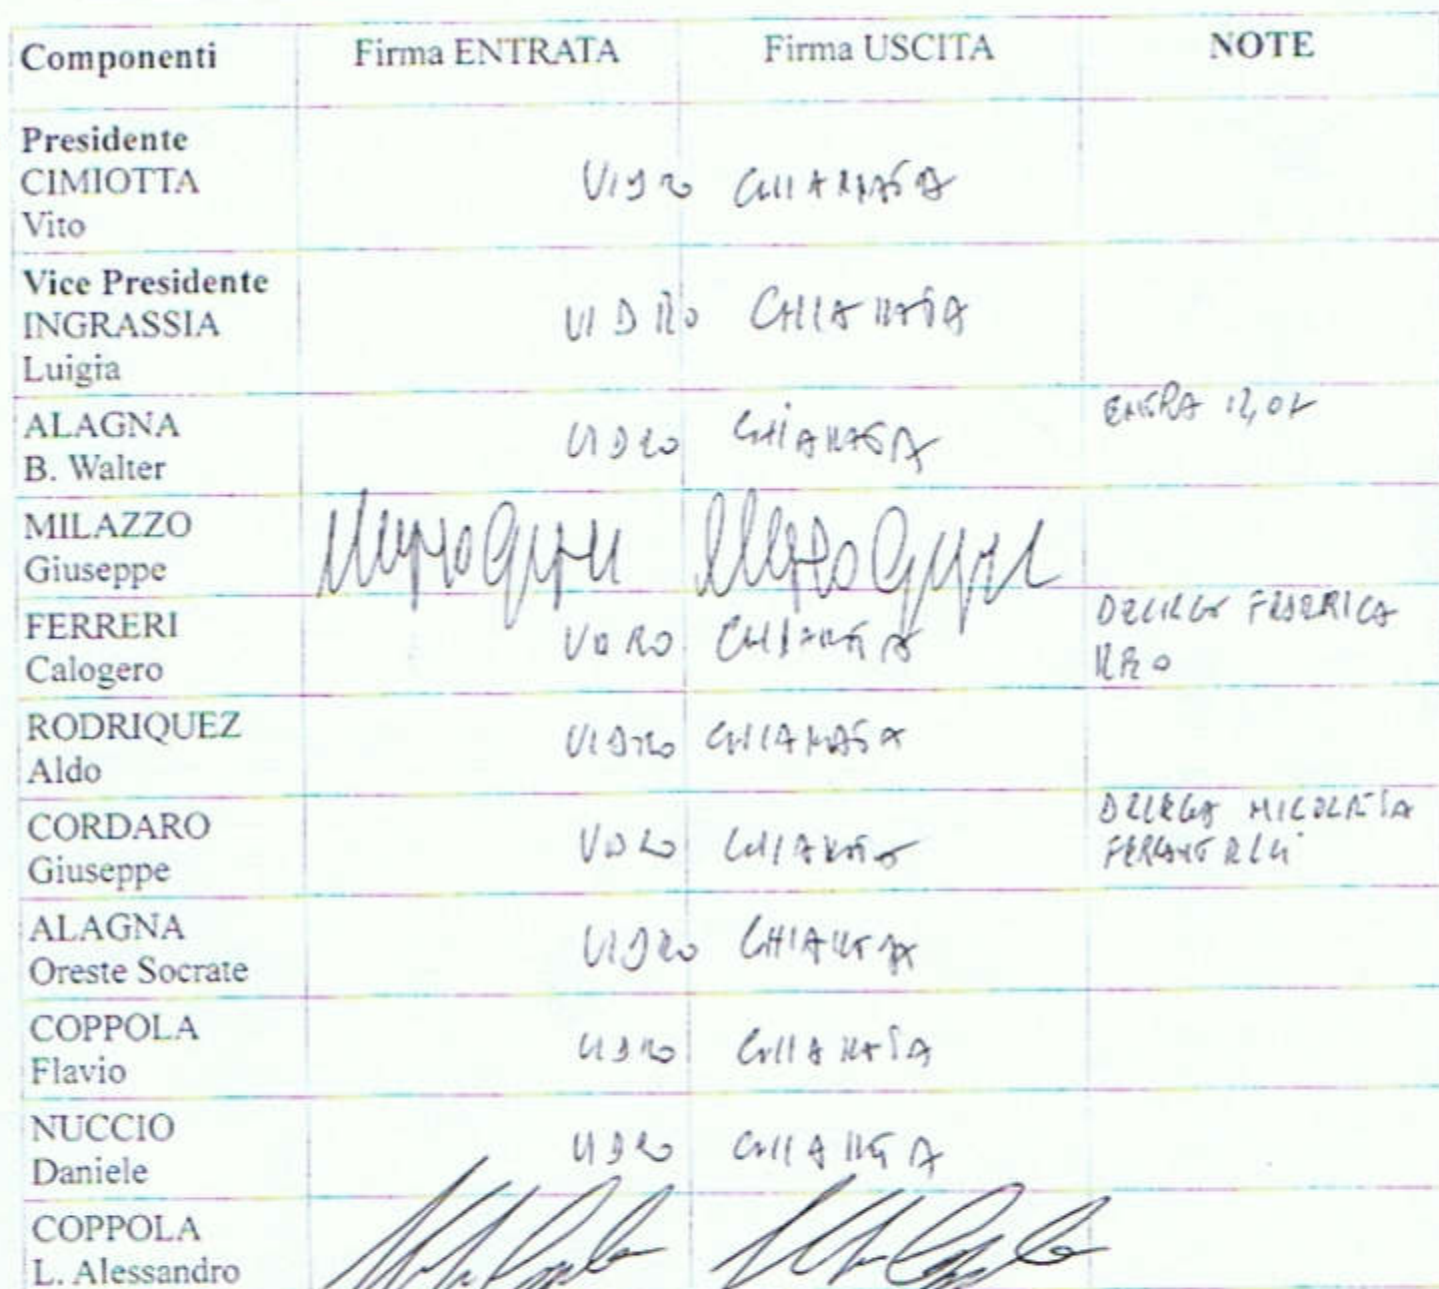 Componenti Firma ENTRATA Firma USCITA NOTE
Presidente
CIMIOTTA
Vito
VIDEO CHIAMATA
Vice Presidente
INGRASSIA
Luigia
VIDEO CHIAMATA
ALAGNA
B. Walter
VIDEO CHIAMATA
ENTRA
MILAZZO
Giuseppe
FERRERI
Calogero
VIDEO CHIAMATA
DELEGA FEDERICA
RODRIQUEZ
Aldo
VIDEO CHIAMATA
CORDARO
Giuseppe
VIDEO CHIAMATA
DELEGA
ALAGNA
Oreste Socrate
VIDEO CHIAMATA
COPPOLA
Flavio
VIDEO CHIAMATA
NUCCIO
Daniele
VIDEO CHIAMATA
COPPOLA
L. Alessandro